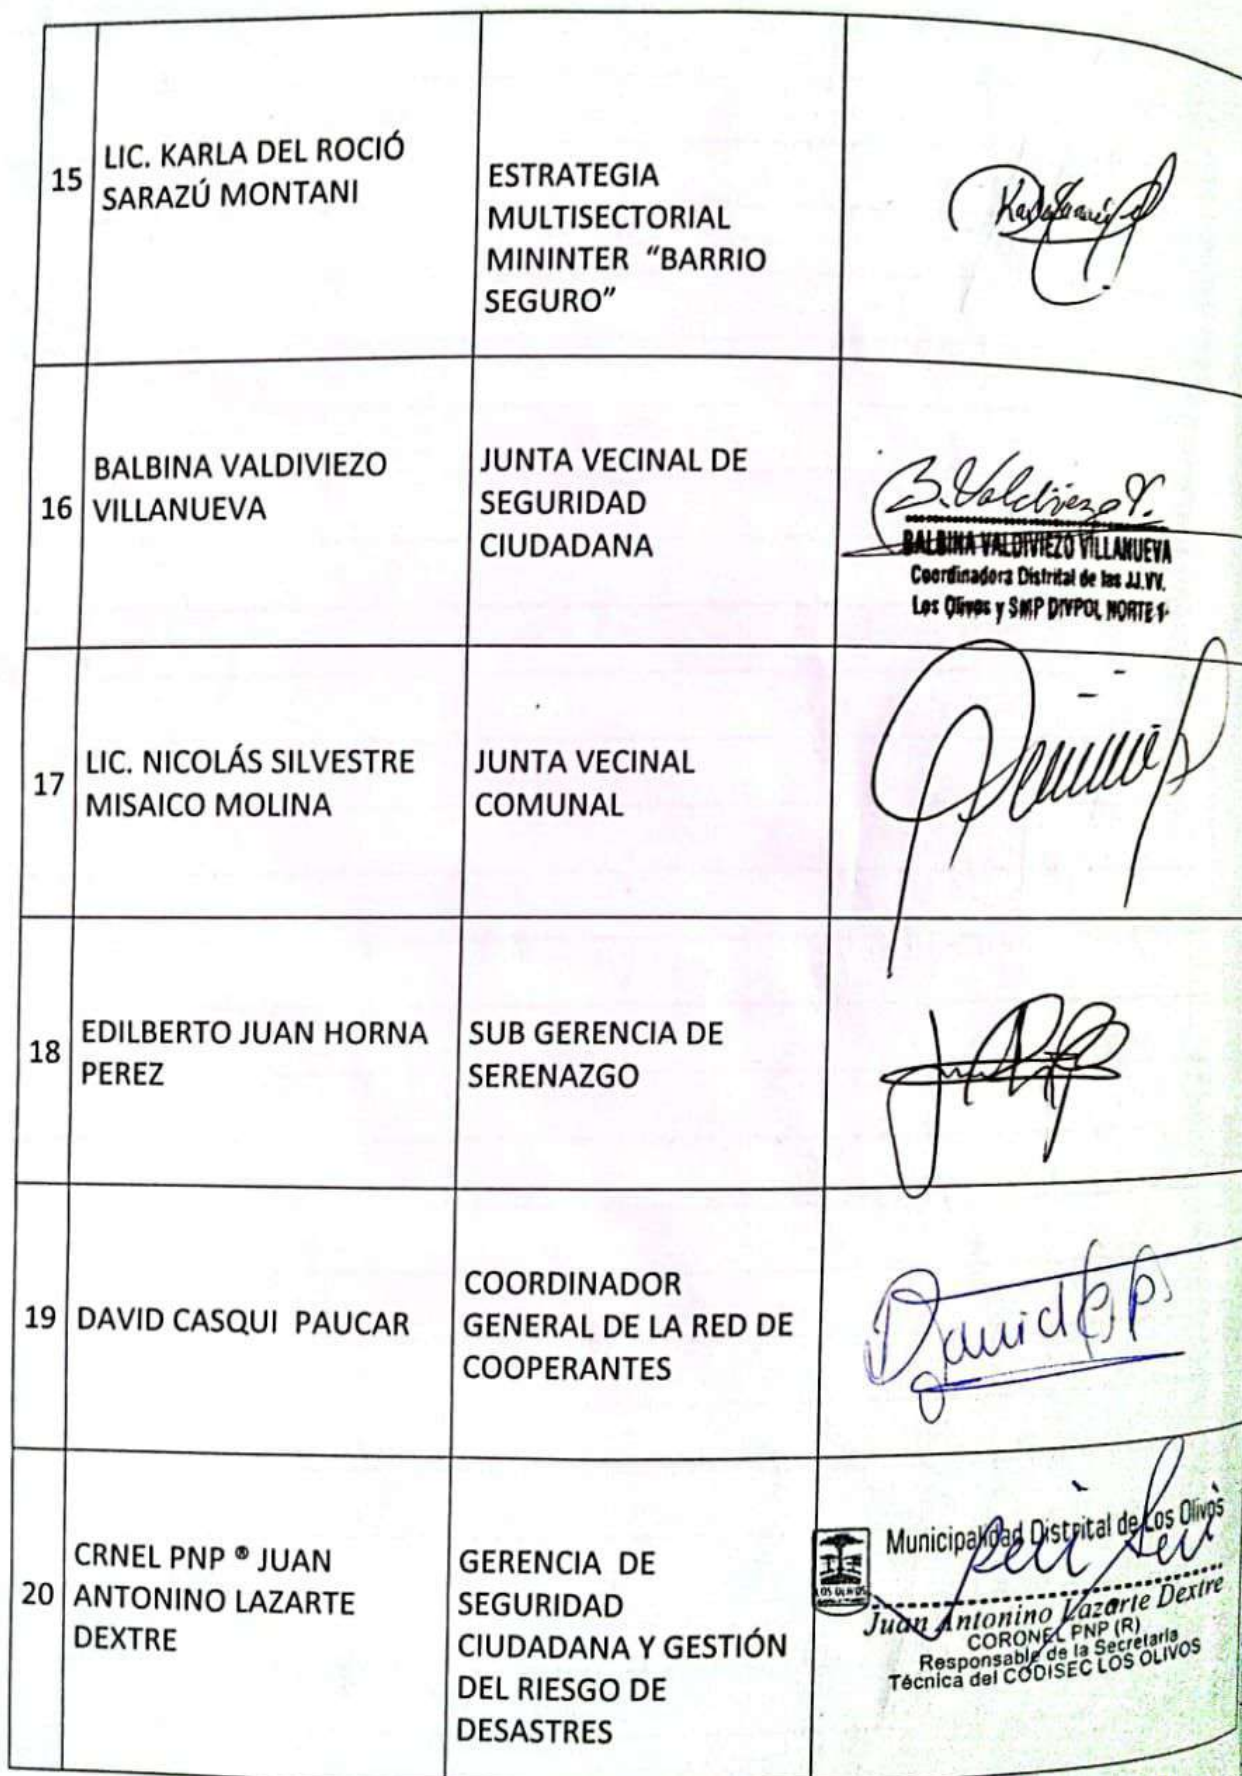 15
LIC. KARLA DEL ROCIÓ
SARAZÚ MONTANI
ESTRATEGIA
MULTISECTORIAL
MININTER “BARRIO
SEGURO”
16
BALBINA VALDIVIEZO
VILLANUEVA
JUNTA VECINAL DE
SEGURIDAD
CIUDADANA
B. Valdiviezo V.
BALBINA VALDIVIEZO VILLANUEVA
Coordinadora Distrital de las JJ.VV.
Los Olivos y SMP DIVPOL NORTE 1
17
LIC. NICOLÁS SILVESTRE
MISAICO MOLINA
JUNTA VECINAL
COMUNAL
18
EDILBERTO JUAN HORNA
PEREZ
SUB GERENCIA DE
SERENAZGO
19
DAVID CASQUI PAUCAR
COORDINADOR
GENERAL DE LA RED DE
COOPERANTES
David
20
CRNEL PNP ® JUAN
ANTONINO LAZARTE
DEXTRE
GERENCIA DE
SEGURIDAD
CIUDADANA Y GESTIÓN
DEL RIESGO DE
DESASTRES
Municipalidad Distrital de Los Olivos
LOS OLIVOS
Juan Antonino Lazarte Dextre
CORONEL PNP (R)
Responsable de la Secretaria
Técnica del CODISEC LOS OLIVOS